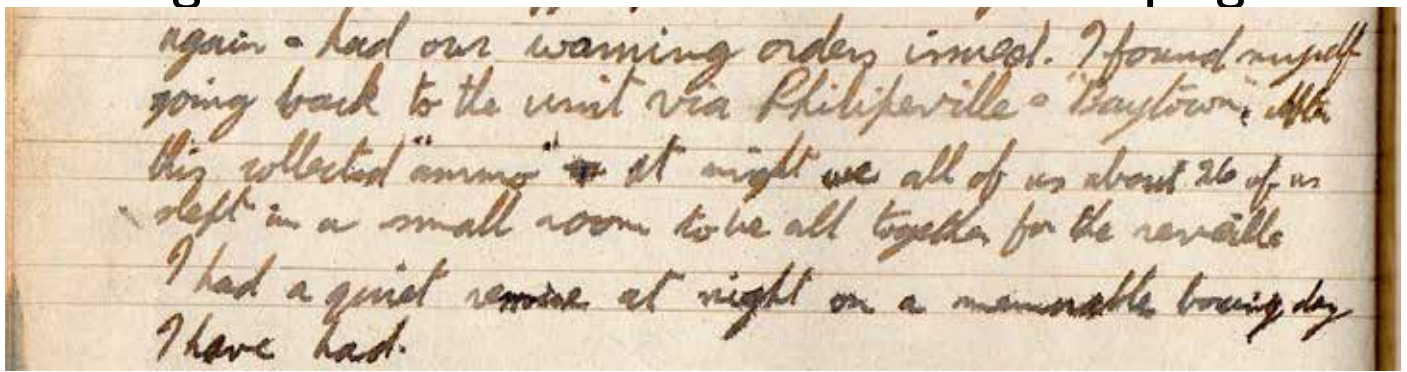 again - had our warning orders issued. I found myself
going back to the unit via Philipeville - "Baytown". After
this collected "ammo" at night we all of us about 26 of us
slept in a small room to be all together for the reveille
I had a quiet at night on a memorable boxing day
I have had.